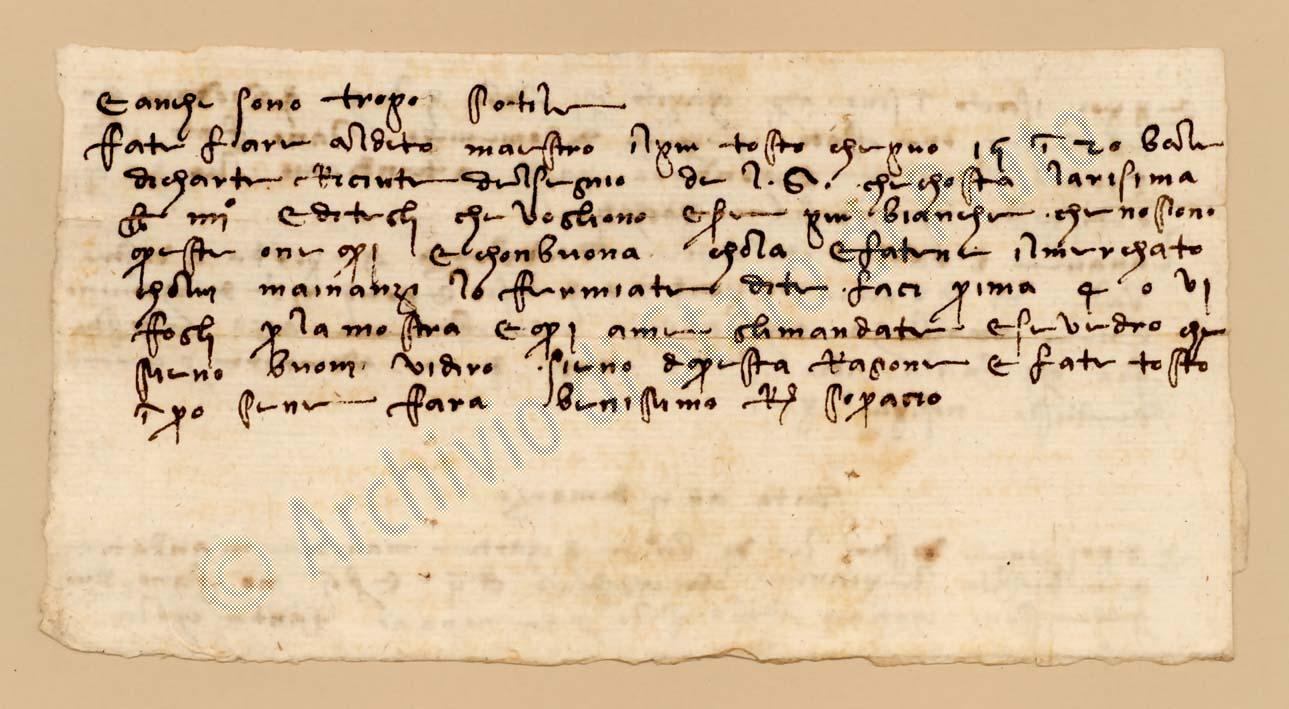 e anche sono tropo sotile
fate fare al deto maestro il piu tosto che puo 15 i 20 bale
di charte riciute del segnio de l. G. che chosta la risima
β iiii° e ditegli che vogliono esere piu bianche che no sono
queste one qui e chon buona chola e fatene il merchato
cholui mainanzi lo fermiate dite faci prima 4 o vi
fogli per la mostra e qui a me gli mandate e se vedro che
sieno buoni vi diro sieno di questa ragone e fate tosto
i po se ne fara benisimo sopacio
© Archivio di Stato